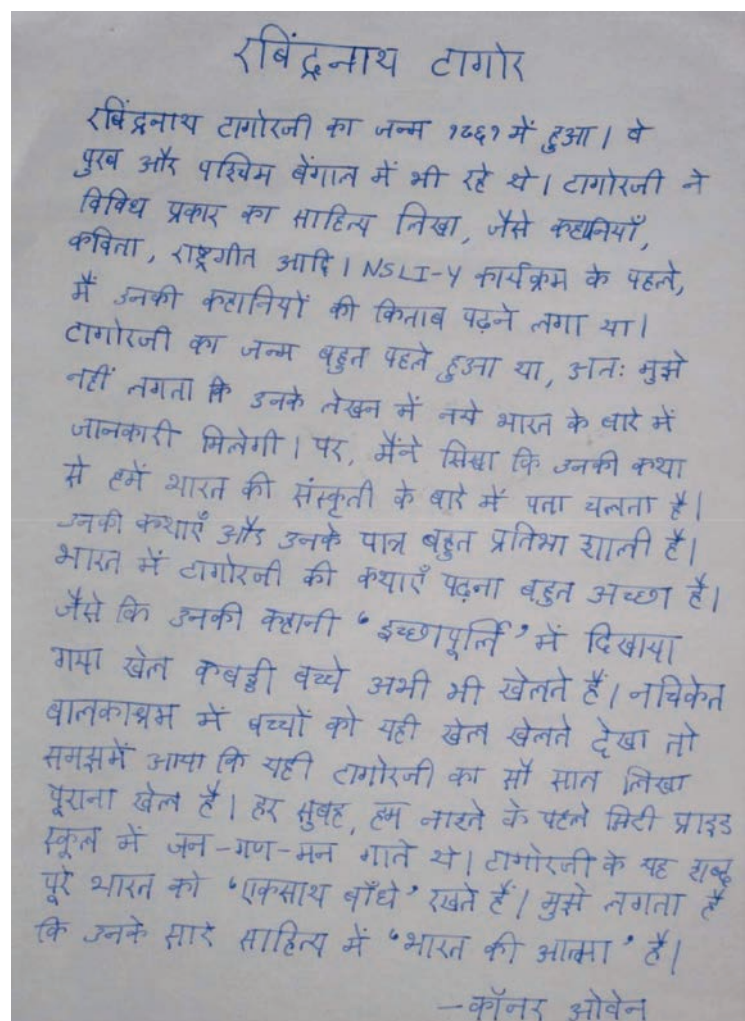 रबिंद्रनाथ टागोर
रबिंद्रनाथ टागोरजी का जन्म १८६१ में हुआ। वे
पुरब और पश्चिम बेंगाल में भी रहे थे। टागोरजी ने
विविध प्रकार का साहित्य लिखा, जैसे कहानियाँ,
कविता, राष्ट्रगीत आदि। NSLI-Y कार्यक्रम के पहले,
मैं उनकी कहानियों की किताब पढ़ने लगा था।
टागोरजी का जन्म बहुत पहले हुआ था, अतः मुझे
नहीं लगता कि उनके लेखन में नये भारत के बारे में
जानकारी मिलेगी। पर, मैंने सिखा कि उनकी कथा
से हमें भारत की संस्कृती के बारे में पता चलता है।
उनकी कथाएँ और उनके पात्र बहुत प्रतिभा शाली है।
भारत में टागोरजी की कथाएँ पढ़ना बहुत अच्छा है।
जैसे कि उनकी कहानी ‘इच्छापूर्ति’ में दिखाया
गया खेल कबड्डी बच्चे अभी भी खेलते हैं। नचिकेत
बालकाश्रम में बच्चों को यही खेल खेलते देखा तो
समझमें आया कि यही टागोरजी का सौ साल लिखा
पूराना खेल है। हर सुबह, हम नाश्ते के पहले सिटी प्राइड
स्कूल में जन-गण-मन गाते थे। टागोरजी के यह शब्द
पूरे भारत को ‘एकसाथ बाँधे’ रखते हैं। मुझे लगता है
कि उनके सारे साहित्य में ‘भारत की आत्मा’ है।
-कॉनर ओवेन